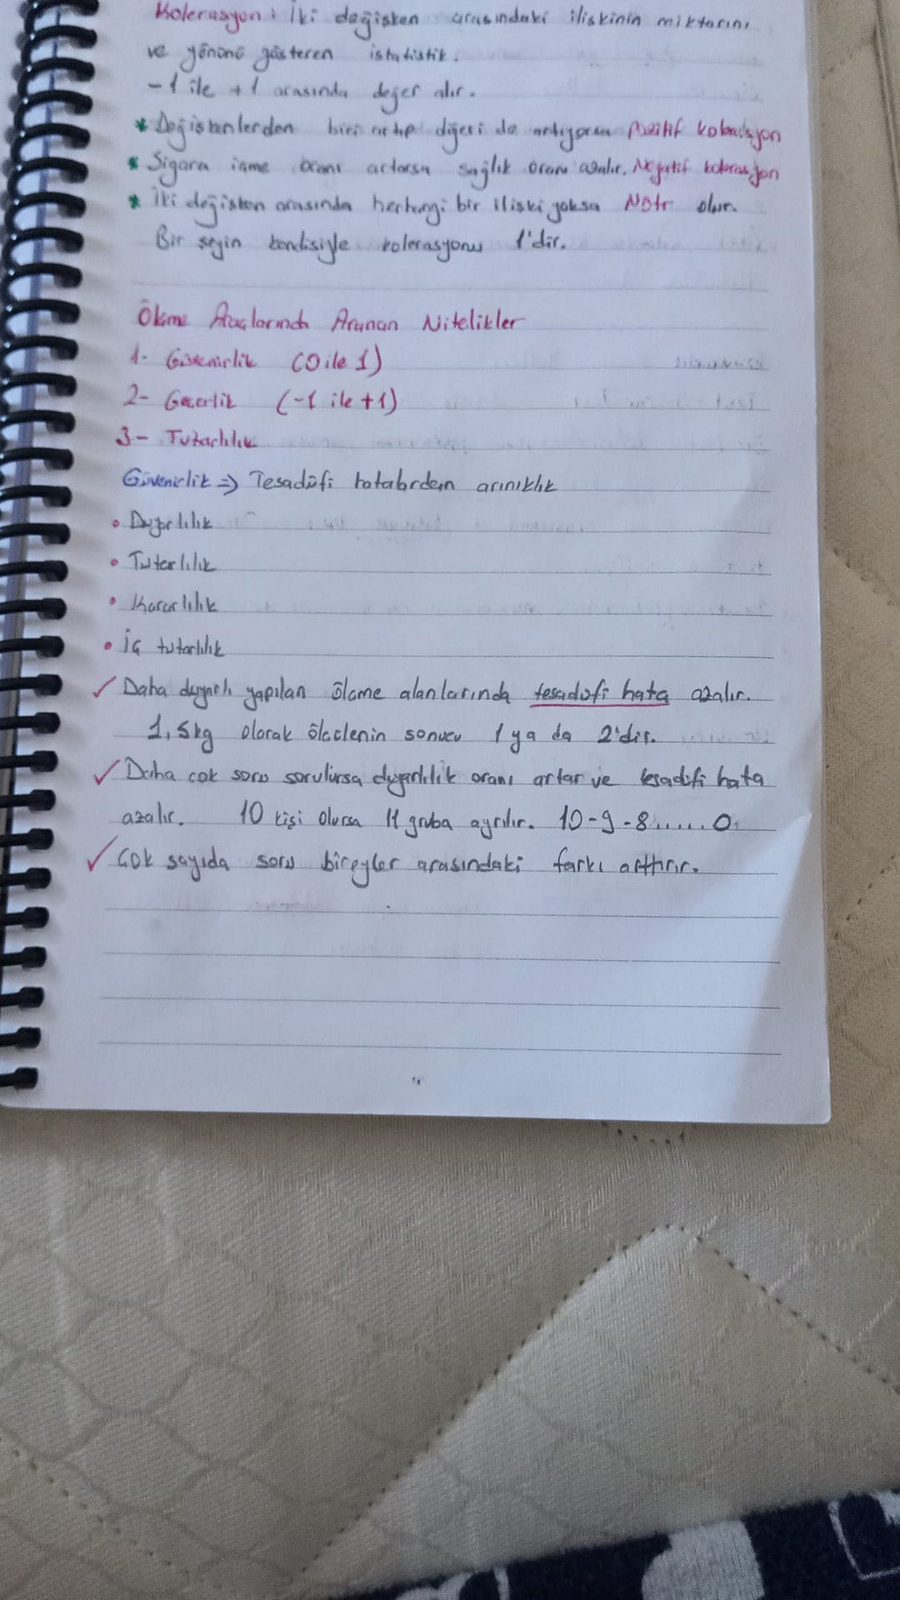 Kolerasyon: İki değişken arasındaki ilişkinin miktarını
ve yönünü gösteren istatistik.
-1 ile +1 arasında değer alır.
* Değişkenlerden biri artıp diğeri de artıyorsa Pozitif kolerasyon
* Sigara içme oranı artarsa sağlık oranı azalır. Negatif kolerasyon
* İki değişken arasında herhangi bir ilişki yoksa Nötr olur.
Bir şeyin kendisiyle kolerasyonu 1'dir.
Ölçme Araçlarında Aranan Nitelikler
1- Güvenirlik (0 ile 1)
2- Geçerlik (-1 ile +1)
3- Tutarlılık
Güvenirlik => Tesadüfi hatalardan arınıklık
• Duyarlılık
• Tutarlılık
• Kararlılık
• İç tutarlılık
✓ Daha duyarlı yapılan ölçme alanlarında tesadüfi hata azalır.
1,5kg olarak ölçülenin sonucu 1 ya da 2'dir.
✓ Daha çok soru sorulursa duyarlılık oranı artar ve tesadüfi hata
azalır. 10 kişi olursa 11 gruba ayrılır. 10-9-8.....0
✓ Çok sayıda soru bireyler arasındaki farkı arttırır.